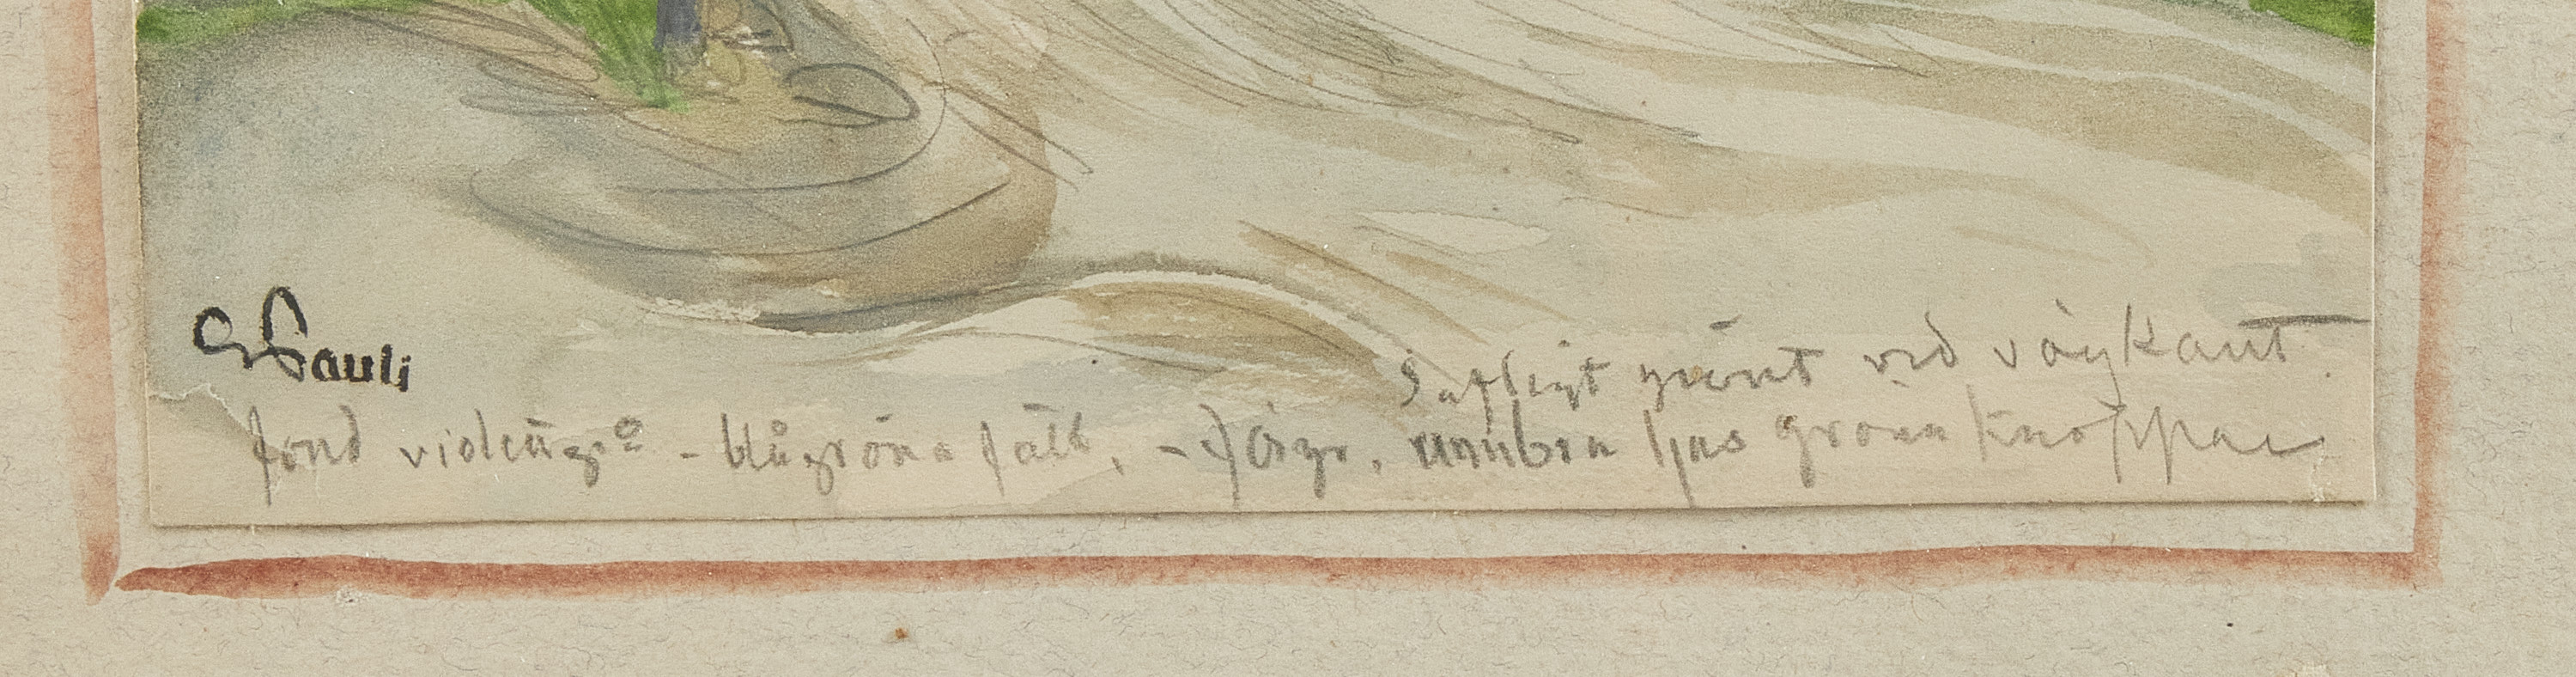 G Pauli
Saftigt grönt vid vägkant.
fond violettgrå - blågröna fält, - färgr. umbra ljus gröna knoppar